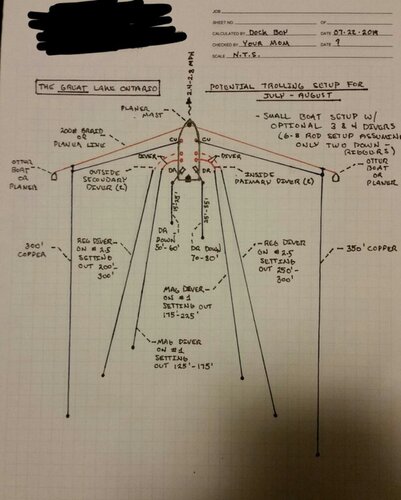 JOB
SHEET NO. OF
CALCULATED BY DOCK BOY DATE 07-22-2019
CHECKED BY YOUR MOM DATE ?
SCALE N.T.S.
2.4-2.8 MPH
THE GREAT LAKE ONTARIO
POTENTIAL TROLLING SETUP FOR
JULY - AUGUST
PLANER
MAST
- SMALL BOAT SETUP W/
OPTIONAL 3 & 4 DIVERS
(6-8 ROD SETUP ASSUMING
ONLY TWO DOWN-
RIGGERS)
200# BRAID
OR PLANER LINE
CU
CU
DIVER
DIVER
DR
DR
OTTER
BOAT OR
PLANER
OUTSIDE
SECONDARY
DIVER (2)
INSIDE
PRIMARY DIVER (2)
OTTER
BOAT OR
PLANER
DR
DOWN
50'-60'
DR DOWN
70-80'
300'
COPPER
REG DIVER
ON # 2.5
SETTING
OUT 200'-
300'
REG DIVER
ON # 2.5
SETTING
OUT 250'-
300'
350' COPPER
MAG DIVER
ON #1
SETTING OUT
175-225'
MAG DIVER
ON #1
SETTING
OUT 125'-175'